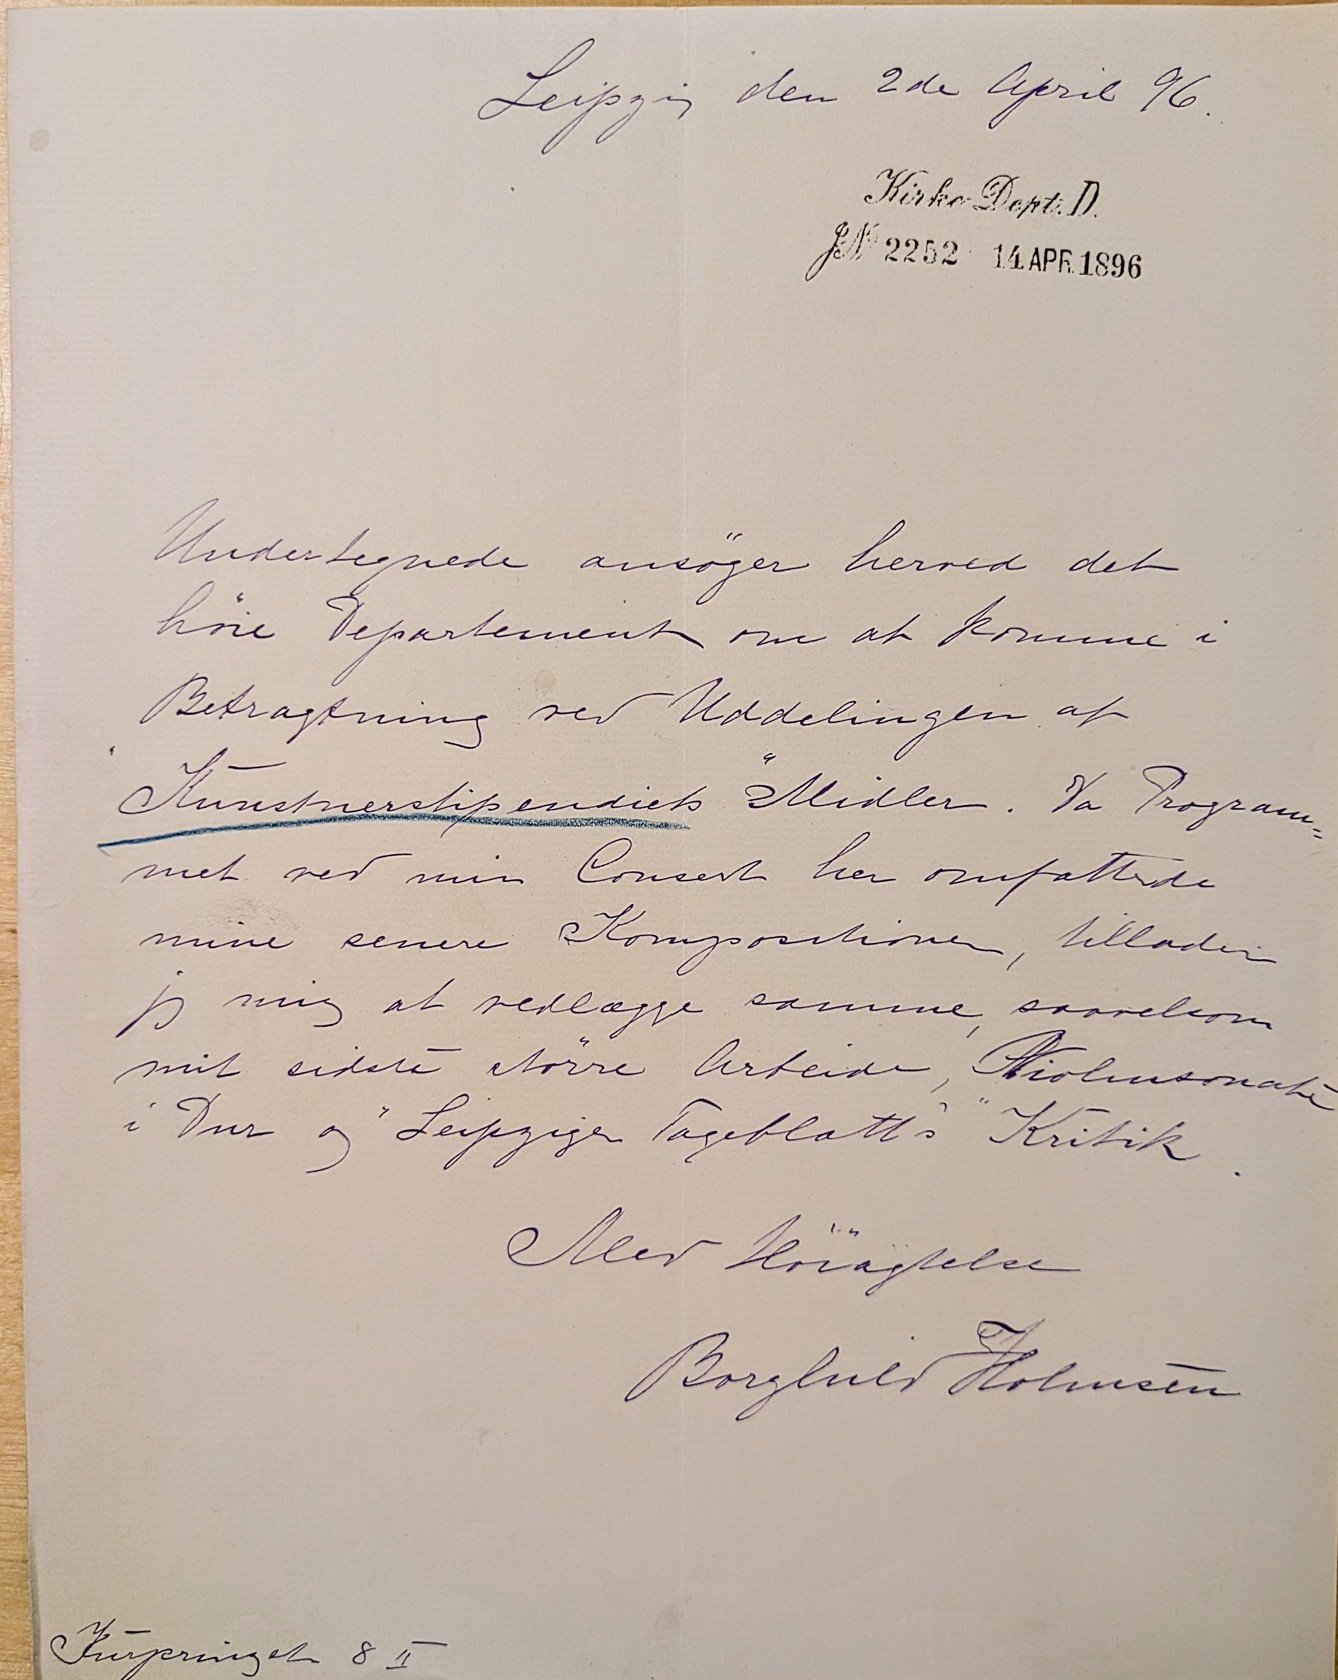 Leipzig den 2de April 96.
Kirke-Dept. D.
JNo 2252 14 APR. 1896
Undertegnede ansöger herved det
höie Departement om at komme i
Betragtning ved Uddelingen af
"Kunstnerstipendiets" Midler. Da Program-
met ved min Concert her omfattede
mine senere Kompositioner, tillader
jeg mig at vedlægge samme, saavelsom
mit sidste större Arbeide, Violinsonate
i Dur og "Leipziger Tageblatt's" Kritik.
Med Höiagtelse
Borghild Holmsen
Kurprinzstr 8 II